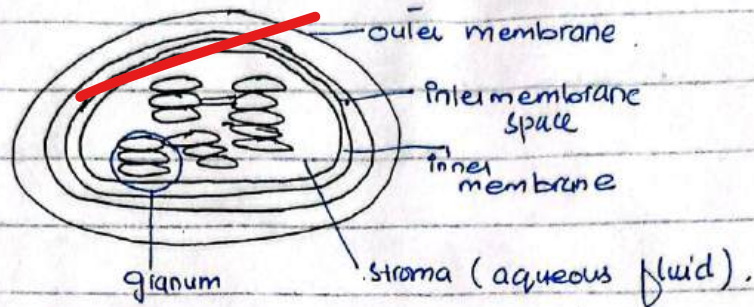 outer membrane
intermembrane
space
inner
membrane
stroma (aqueous fluid).
granum